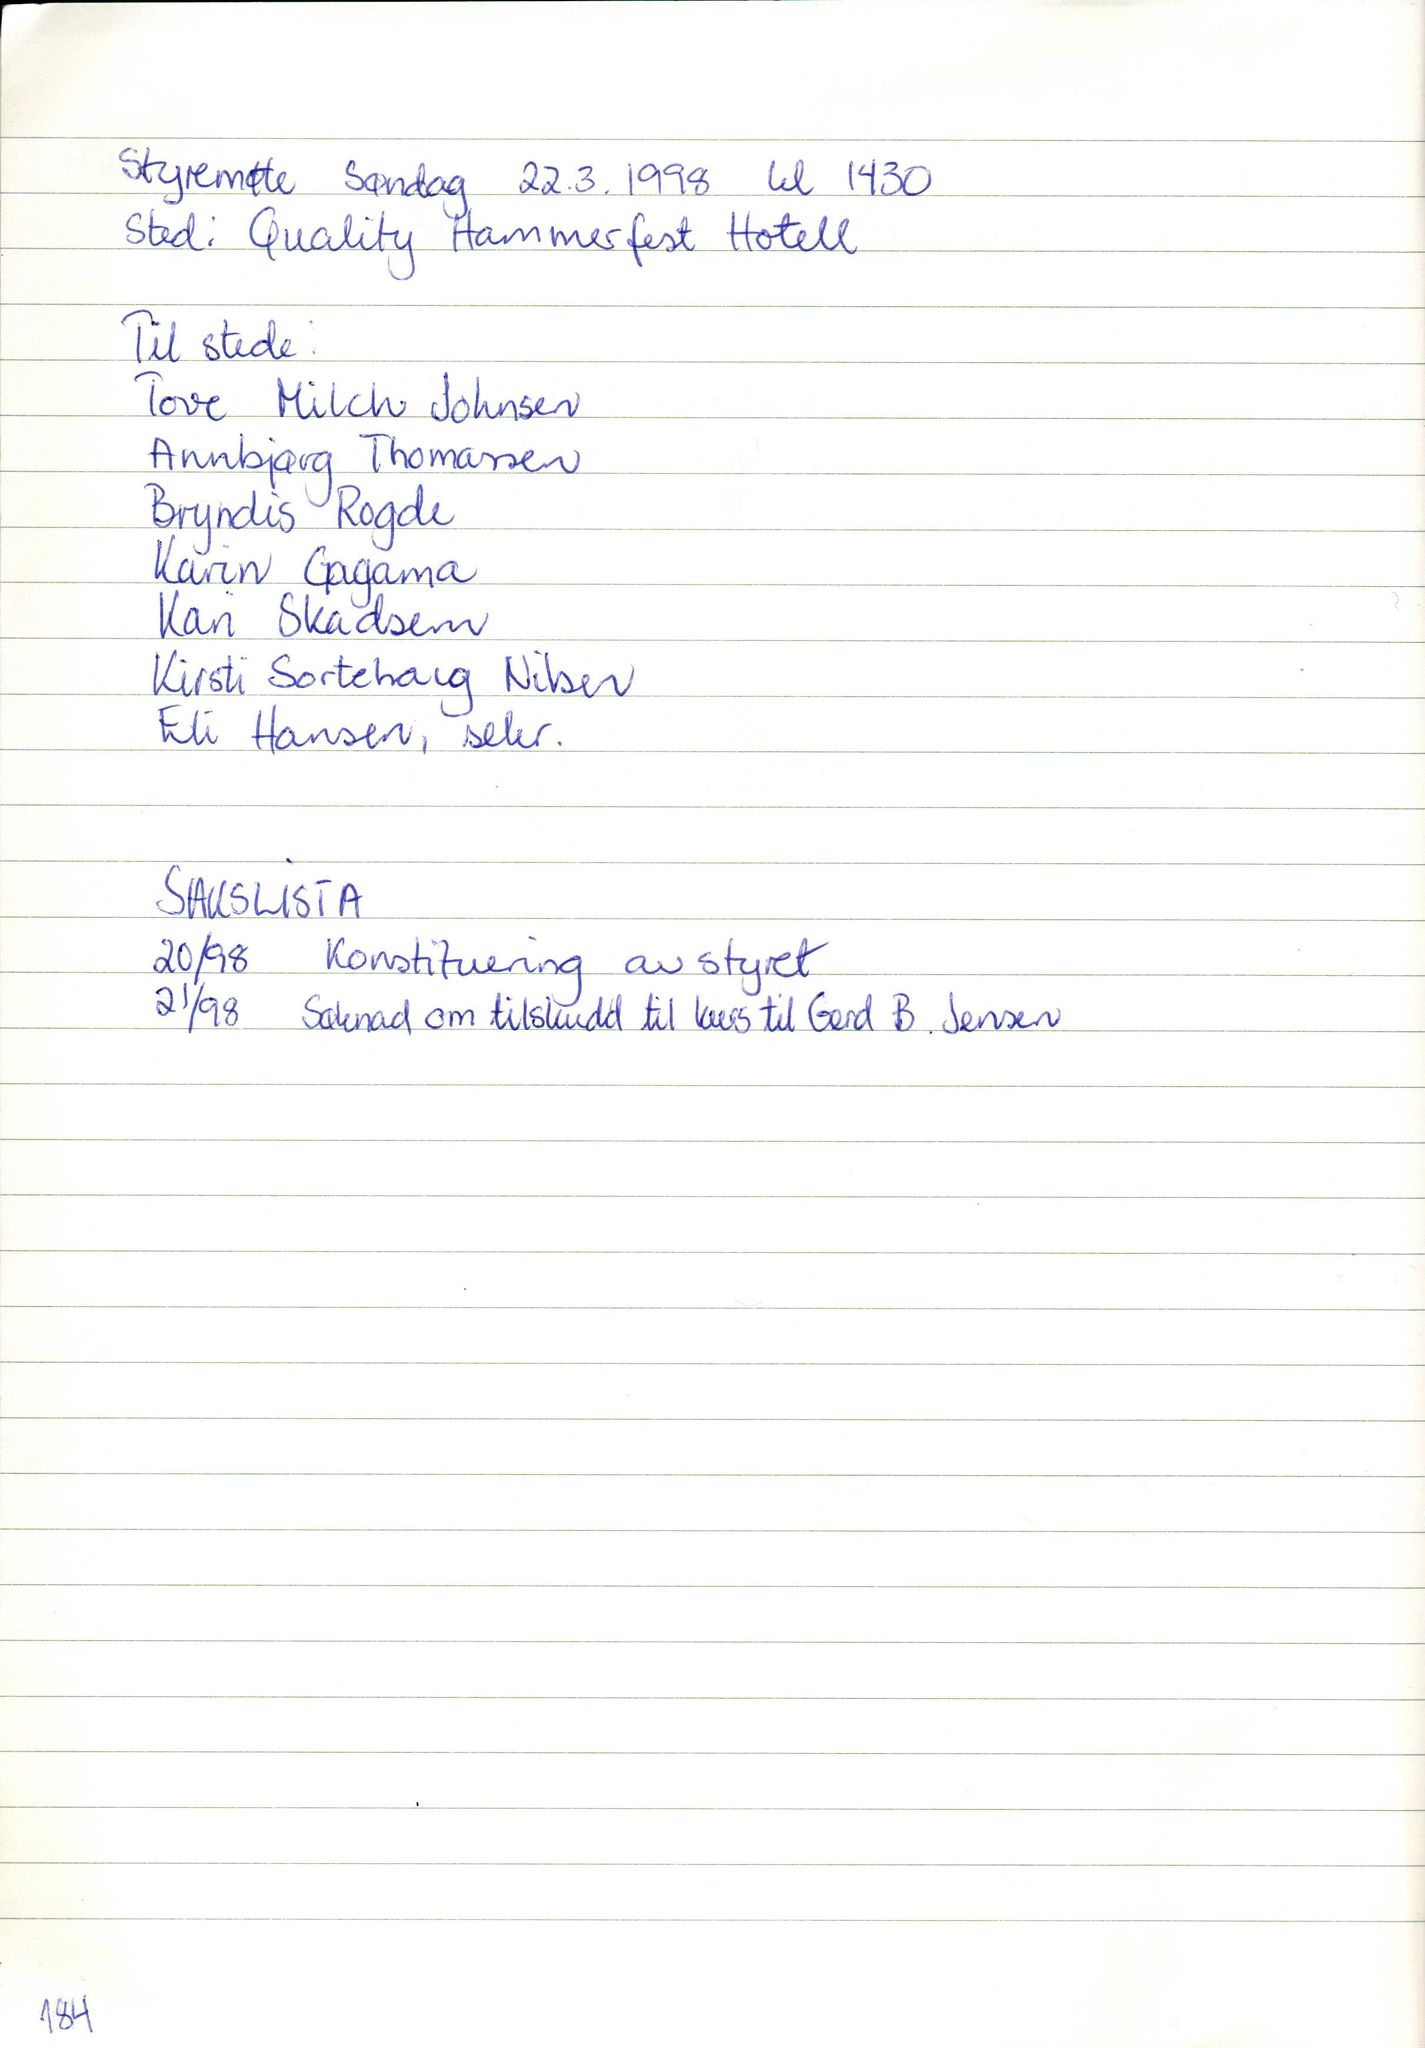 Styremøte Søndag 22.3.1998 kl 1430
Sted: Quality Hammerfest Hotell
Til stede:
Tove Milch Johnsen
Annbjørg Thomassen
Bryndis Rogde
Karin Gagama
Kari Skadsem
Kirsti Sortehaug Nilsen
Eli Hansen, sekr.
SAKSLISTA
20/98 Konstituering av styret
21/98 Søknad om tilskudd til kurs til Gerd B. Jensen
184